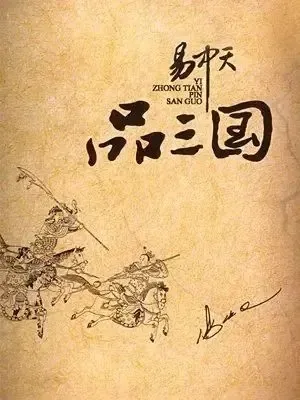 易中天
YI
ZHONG TIAN
PIN
SAN GUO
品三国